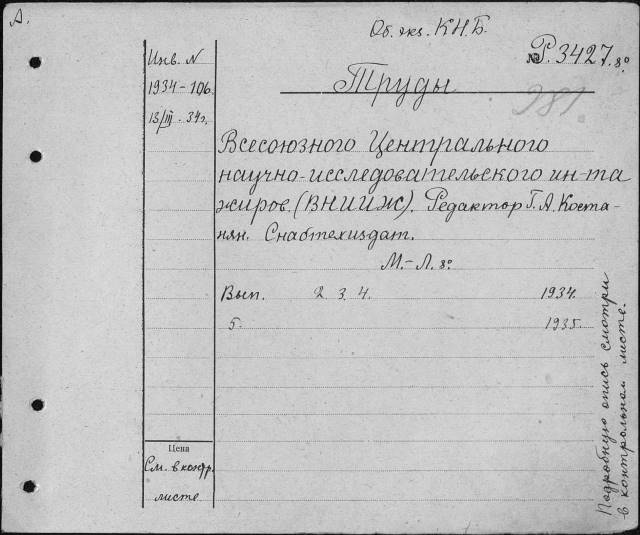 А.
Об. экз. К.Н.Б.
№ Р. 3427. 8º
Труды
981
Инв. N
1934-106.
13/III - 34г.
Всесоюзного Центрального
научно-исследовательского ин-та
жиров. (ВНИИЖ). Редактор Г. А. Коста-
нян. Снабтехиздат.
М.-Л. 8º
Вып. 2. 3. 4. 1934.
5. 1935.
Цена
См. в контр.
листе
Подробную опись смотри
в контрольном листе.